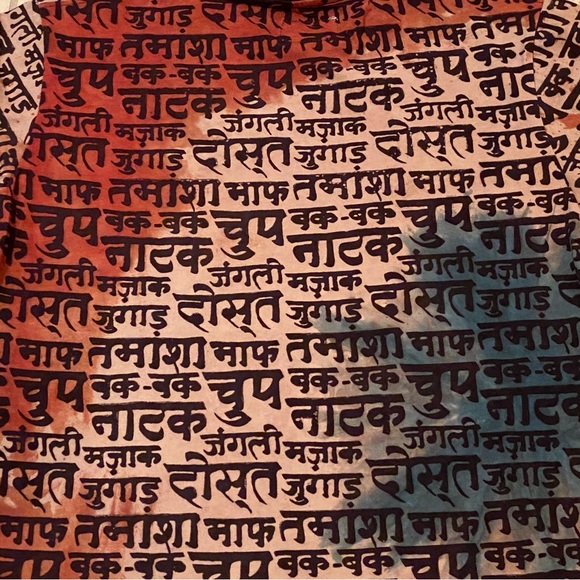 जुगाड़ दोस्त जुगाड़ दोस्त जुगाड़
जंगली माफ तमाशा माफ तमाशा माफ
मज़ाक चुप बक-बक चुप बक-बक चुप
जुगाड़ नाटक नाटक
जंगली मज़ाक जंगली मज़ाक जंगली मज़ाक
दोस्त जुगाड़ दोस्त जुगाड़ दोस्त जुगाड़
माफ तमाशा माफ तमाशा माफ
चुप बक-बक चुप बक-बक चुप
नाटक नाटक
जंगली मज़ाक जंगली मज़ाक जंगली मज़ाक
दोस्त जुगाड़ दोस्त जुगाड़ दोस्त जुगाड़
माफ तमाशा माफ तमाशा माफ तमाशा
चुप बक-बक चुप बक-बक चुप बक-बक
नाटक नाटक
जंगली मज़ाक जंगली मज़ाक जंगली मज़ाक
दोस्त जुगाड़ दोस्त जुगाड़ दोस्त जुगाड़
माफ तमाशा माफ तमाशा माफ तमाशा
चुप बक-बक चुप बक-बक चुप बक-बक